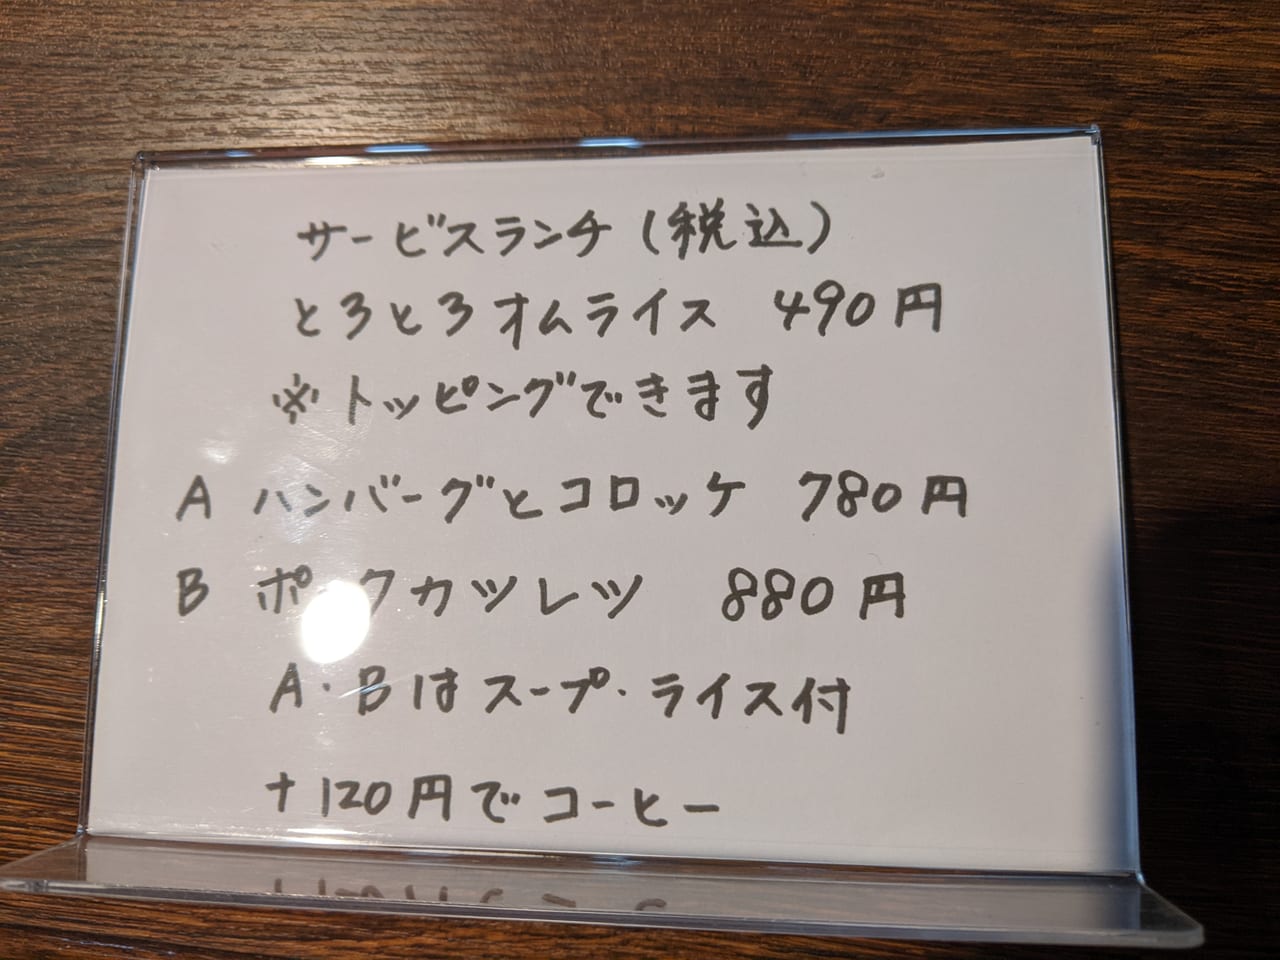 サービスランチ(税込)
とろとろオムライス 490円
※トッピングできます
A ハンバーグとコロッケ 780円
B ポークカツレツ 880円
A・Bはスープ・ライス付
+120円でコーヒー